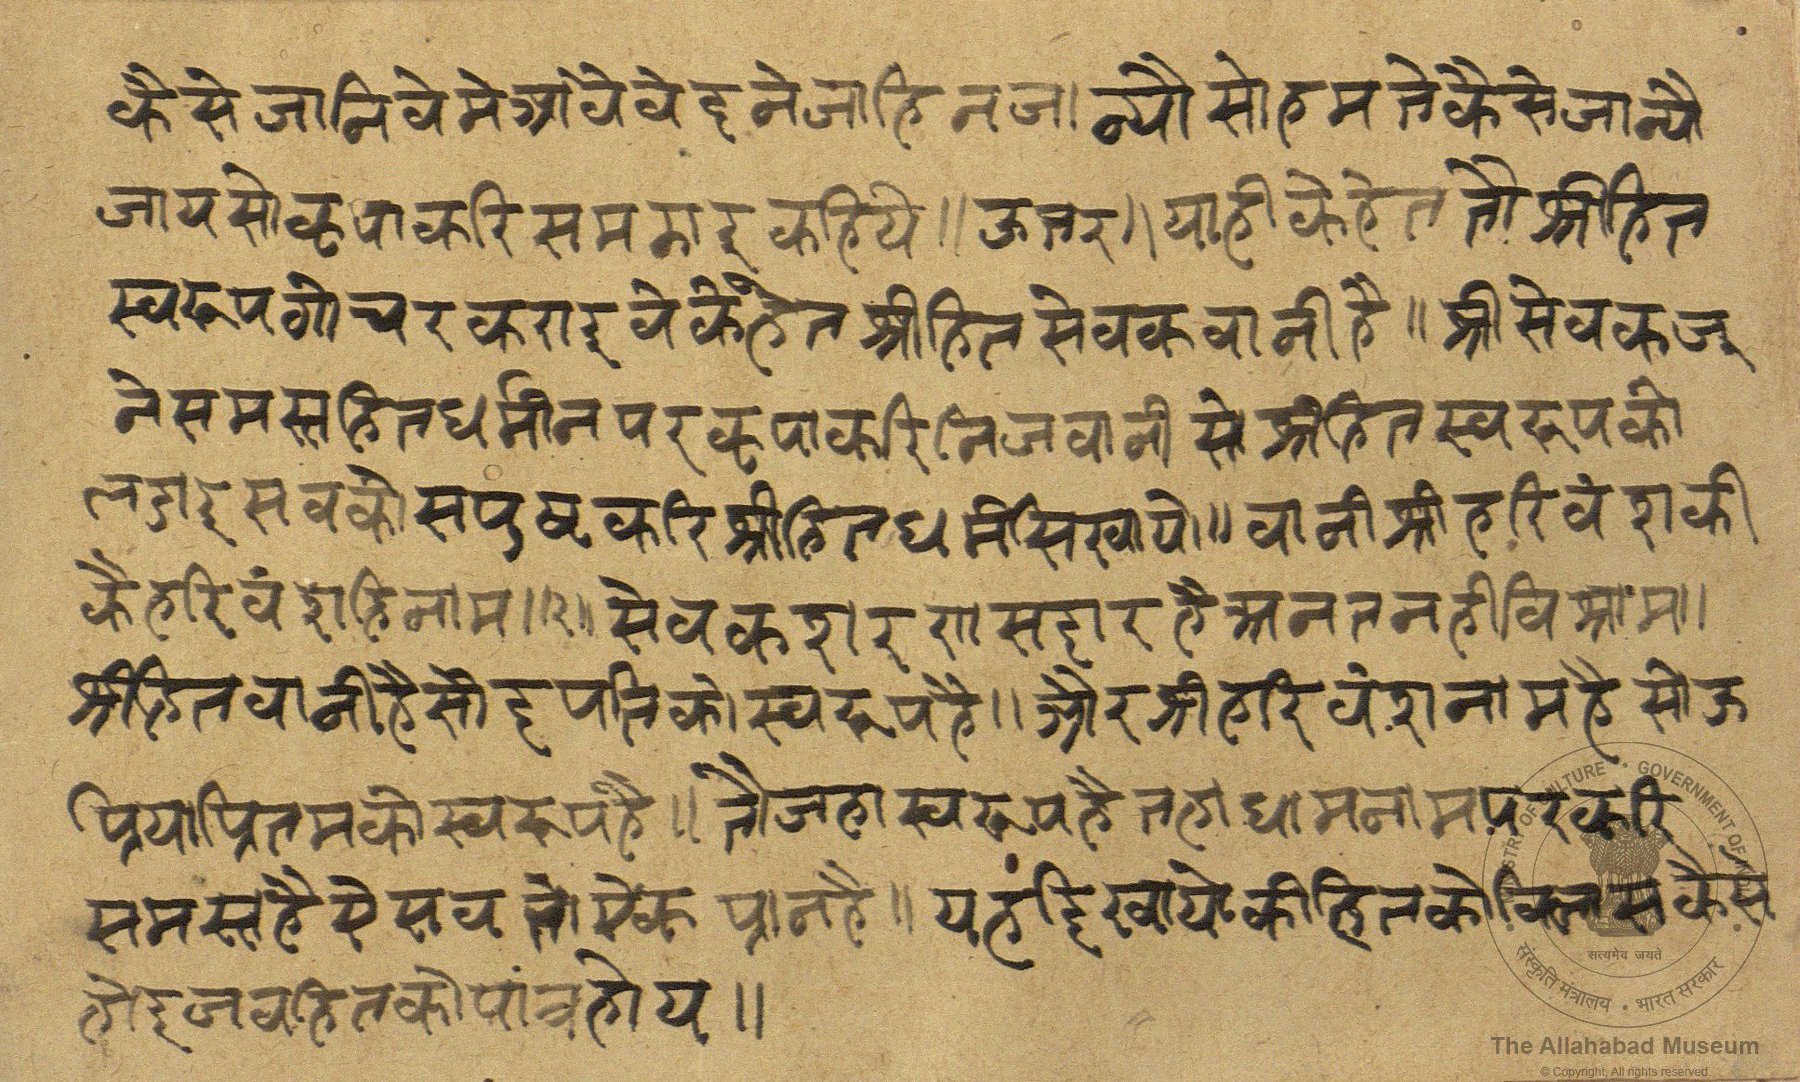 कैसे जानिवे मे आवे वेद ने जाहि न जान्यौ सो हमते कैसे जान्यौ
जाय सो कृपा करि समझाइ कहिये ॥ ऊत्तर ॥ याही के हेत तौ श्रीहित
स्वरूप गोचर कराइवे के हेत श्रीहित सेवक वानी है ॥ श्री सेवक जू
ने समस्त हित धर्मीन पर कृपा करि निज वानी से श्रीहित स्वरूप को
लडाइ सवको सपुष्ट करि श्रीहित धर्म सिखायो ॥ वानी श्री हरिवंश की
कै हरिवंशहि नाम ॥२॥ सेवक शरण सदा रहै अनत नही विश्राम ॥
श्रीहित वानी है सो दंपति को स्वरूप है ॥ और श्री हरिवंश नाम है सोऊ
प्रिया प्रितम को स्वरूप है ॥ तौ जहा स्वरूप है तहा धाम नाम परकरि
समस्त है ये सव तो ऐक प्रान है ॥ यहां दिखायो की हित को विलास कैसे
होइ जव हित को पात्र होय ॥
सत्यमेव जयते
MINISTRY OF CULTURE • GOVERNMENT OF INDIA
संस्कृति मंत्रालय • भारत सरकार
The Allahabad Museum
© Copyright, All rights reserved.